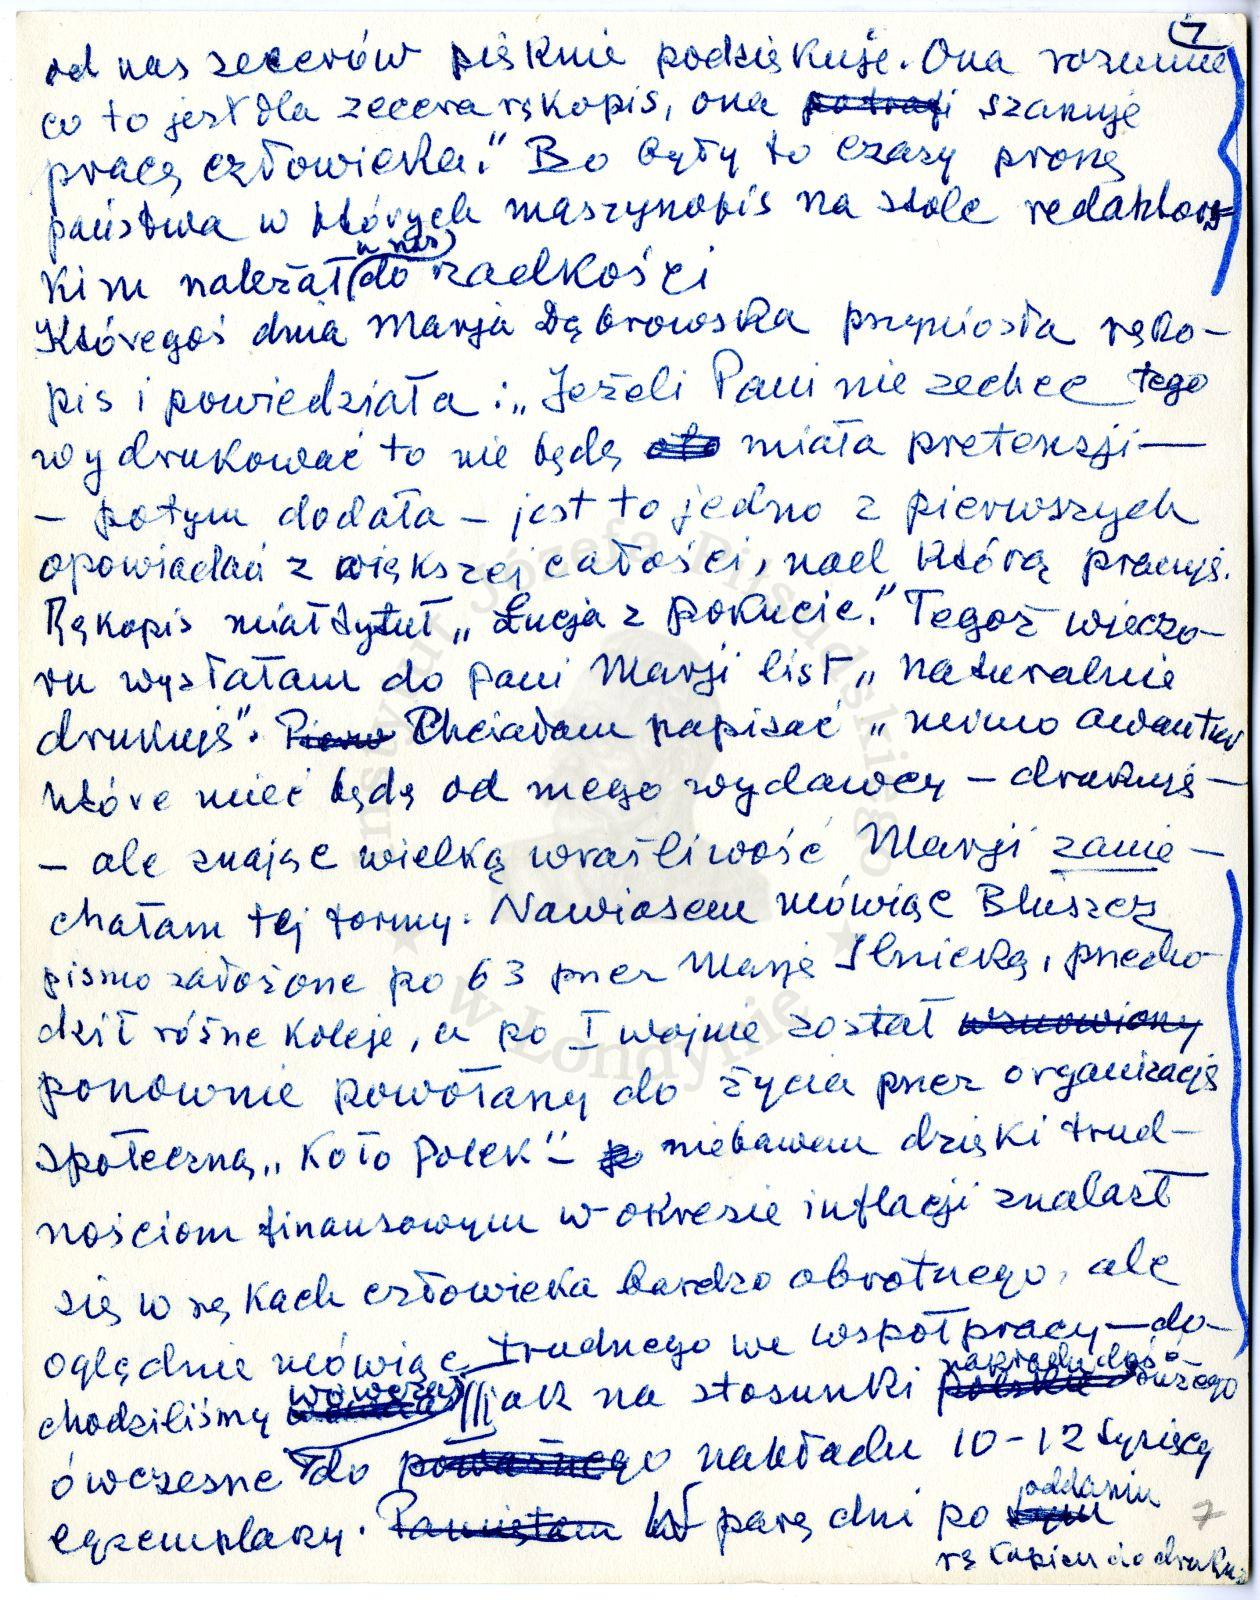 7
od nas zecerów pięknie podziękuje. Ona rozumie
co to jest dla zecera rękopis, ona potrafi szanuje
pracę człowieka." Bo były to czasy proszę
państwa w których maszynopis na stole redaktors-
kim należał (u nas) do rzadkości
Któregoś dnia Marja Dąbrowska przyniosła ręko-
pis i powiedziała: „Jeżeli Pani nie zechce tego
wydrukować to nie będę miała pretensji —
— potym dodała — jest to jedno z pierwszych
opowiadań z większej całości, nad którą pracuję.
Rękopis miał tytuł „Łucja z pokucic." Tegoż wieczo-
ru wysłałam do pani Marji list „naturalnie
drukuję". Chciałam napisać „mimo awantur
które mieć będę od mego wydawcy — drukuję —
— ale znając wielką wrażliwość Marji zanie-
chałam tej formy. Nawiasem mówiąc Bluszcz
pismo założone po 63 przez Marję Ilnicką, przecho-
dził różne koleje, a po I wojnie został wznowiony
ponownie powołany do życia przez organizację
społeczną „Koło Polek" — niebawem dzięki trud-
nościom finansowym w okresie inflacji znalazł
się w rękach człowieka bardzo obrotnego, ale
oględnie mówiąc trudnego we współpracy — do-
chodziliśmy wówczas jak na stosunki polskie nakładu dość dużego
ówczesne do poważnego nakładu 10-12 tysięcy
egzemplarzy. Pamiętam W parę dni po tym oddaniu
rękopisu do druku
7
Instytut Józefa Piłsudskiego
w Londynie